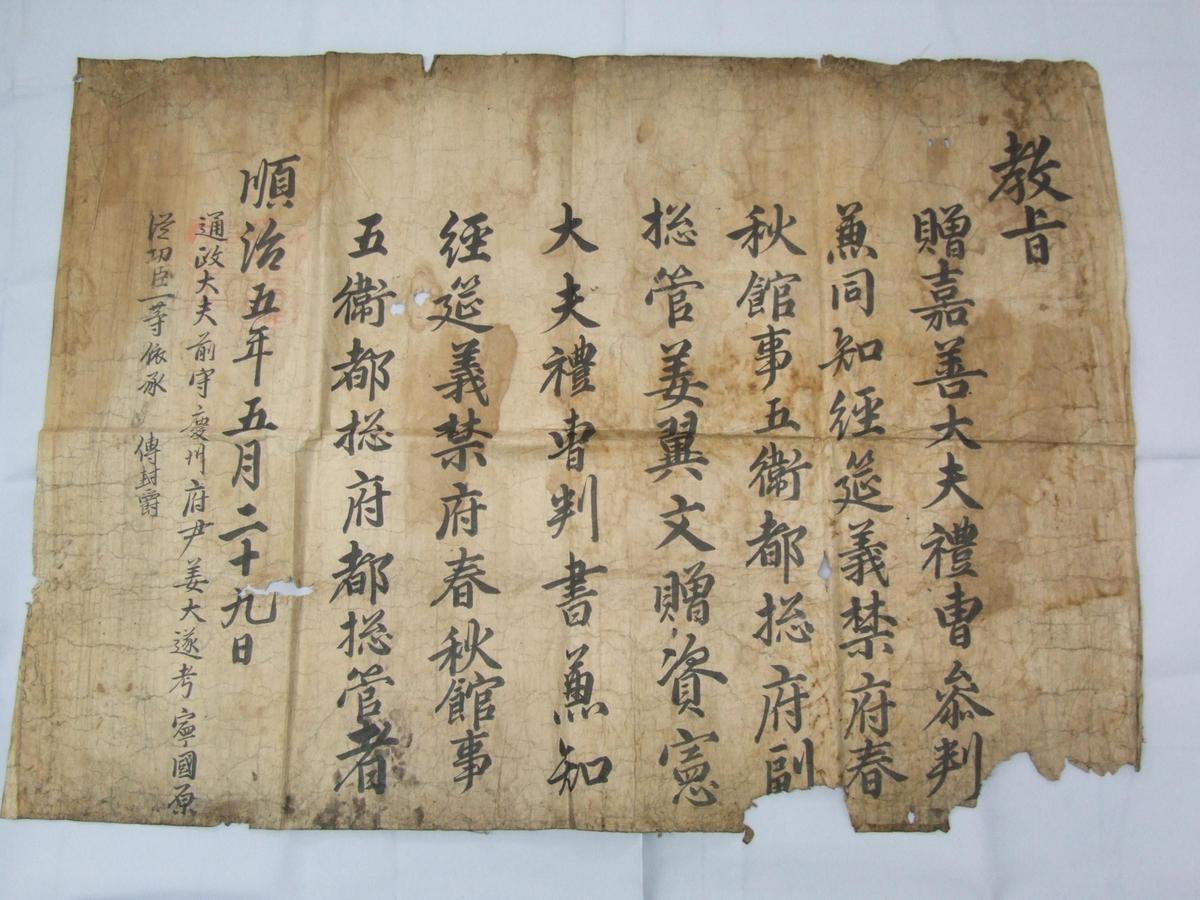 教旨
贈嘉善大夫禮曺叅判
兼同知經筵義禁府春
秋館事五衛都捴府副
捴管姜翼文贈資憲
大夫禮曺判書兼知
經筵義禁府春秋館事
五衛都捴府都捴管者
順治五年五月二十九日
通政大夫前守慶州府尹姜大遂考寧國原
從功臣一等依承 傳封爵